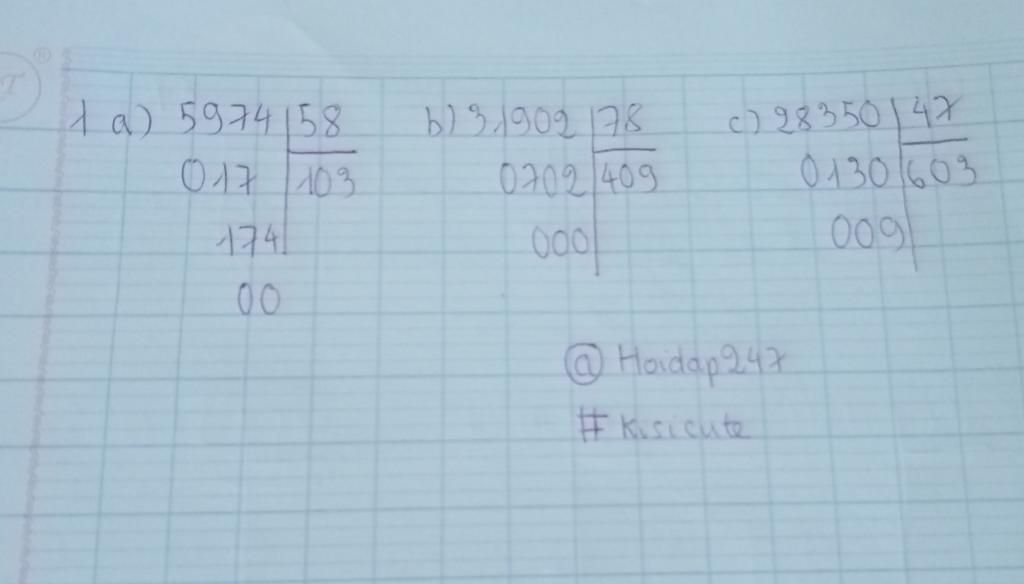 1 a) 5974 58 b) 31902 78 c) 28350 47
017 103 0702 409 0130 603
174 000 009
00
@ Hoidap247
# Kisicute